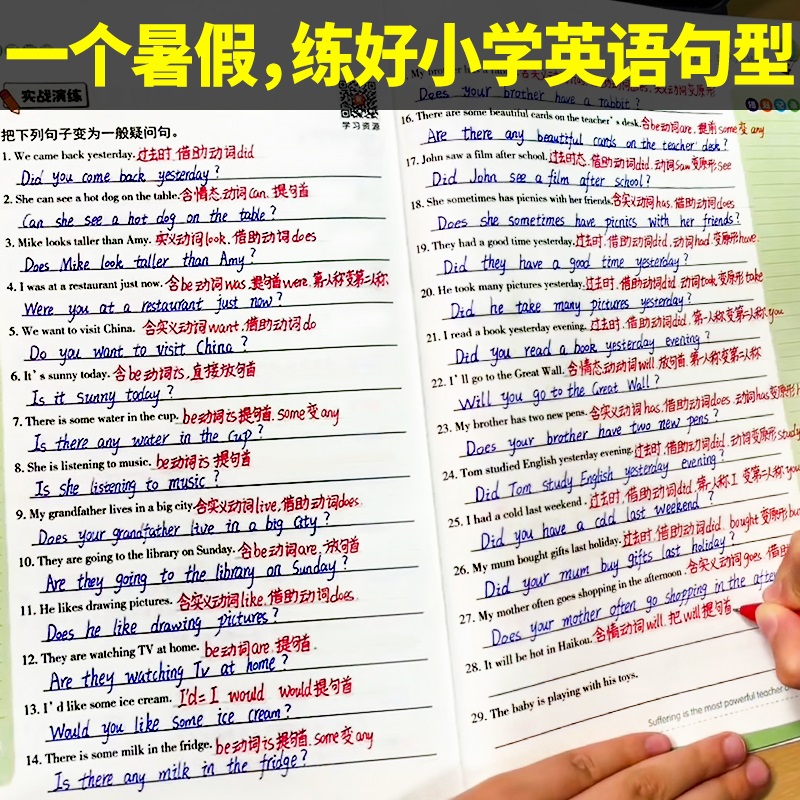 一个暑假，练好小学英语句型
实战演练
学习资源
把下列句子变为一般疑问句。
1. We came back yesterday. 过去时.借助动词did
Did you come back yesterday?
2. She can see a hot dog on the table. 含情态动词can.提句首
Can she see a hot dog on the table?
3. Mike looks taller than Amy. 实义动词look.借助动词does
Does Mike look taller than Amy?
4. I was at a restaurant just now. 含be动词was.提句首were.第一人称变第二人称
Were you at a restaurant just now?
5. We want to visit China. 含实义动词want.借助动词do
Do you want to visit China?
6. It's sunny today. 含be动词is.直接放句首
Is it sunny today?
7. There is some water in the cup. be动词is提句首.some变any
Is there any water in the cup?
8. She is listening to music. be动词is提句首
Is she listening to music?
9. My grandfather lives in a big city. 含实义动词live.借助动词does.
Does your grandfather live in a big city?
10. They are going to the library on Sunday. 含be动词are.放句首
Are they going to the library on Sunday?
11. He likes drawing pictures. 含实义动词like.借助动词does.
Does he like drawing pictures?
12. They are watching TV at home. be动词are.提句首.
Are they watching Tv at home?
13. I'd like some ice cream. I'd=I would would提句首
Would you like some ice cream?
14. There is some milk in the fridge. be动词is提句首.some变any
Is there any milk in the fridge?
My brother
Does your brother have a rabbit?
16. There are some beautiful cards on the teacher's desk. 含be动词are.提前some变any
Are there any beautiful cards on the teacher desk?
17. John saw a film after school. 过去时态.借助动词did.动词saw变原形see
Did John see a film after school?
18. She sometimes has picnics with her friends. 含实义动词has.借助动词does
Does she sometimes have picnics with her friends?
19. They had a good time yesterday. 过去时.借助动词did.动词had.变原形have.
Did they have a good time yesterday?
20. He took many pictures yesterday. 过去时.借助动词did 动词took.变原形take
Did he take many pictures yesterday?
21. I read a book yesterday evening. 过去时.借助动词did.第一人称变第二人称you
Did you read a book yesterday evening?
22. I'll go to the Great Wall. 含情态动动词will 放句首.第一人称变第二人称
Will you go to the Great Wall?
23. My brother has two new pens. 含实义动词has.借助动词does.动词has变原形
Does your brother have two new pens?
24. Tom studied English yesterday evening. 过去时.借助动词did.动词变原形study
Did Tom study English yesterday evening?
25. I had a cold last weekend. 过去时.借助动词did.第一人称I 变第二人称you
Did you have a cold last weekend?
26. My mum bought gifts last holiday. 过去时.借助动词did.bought变原形
Did your mum buy gifts last holiday?
27. My mother often goes shopping in the afternoon. 含实义动词goes.借助
Does your mother often go shopping in the
28. It will be hot in Haikou. 含情动词will.把will提句首
29. The baby is playing with his toys.
Suffering is the most powerful teacher